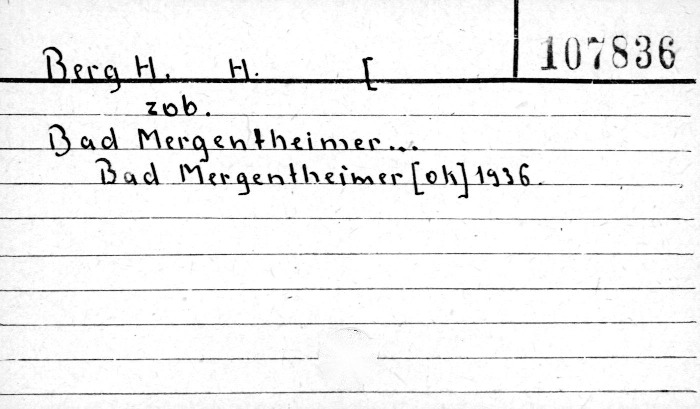 107836
Berg H. H. [
zob.
Bad Mergentheimer...
Bad Mergentheimer [ok] 1936.